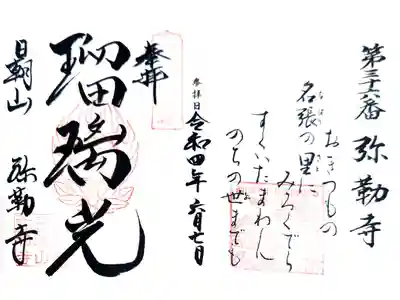 第三十六番 弥勒寺
おきつもの
名張の里に
なばり さと
みろくでら
すくいたまわん
のちの世までも
参拝日 令和四年 六月七日
奉拝
瑠璃光
日朝山 弥勒寺